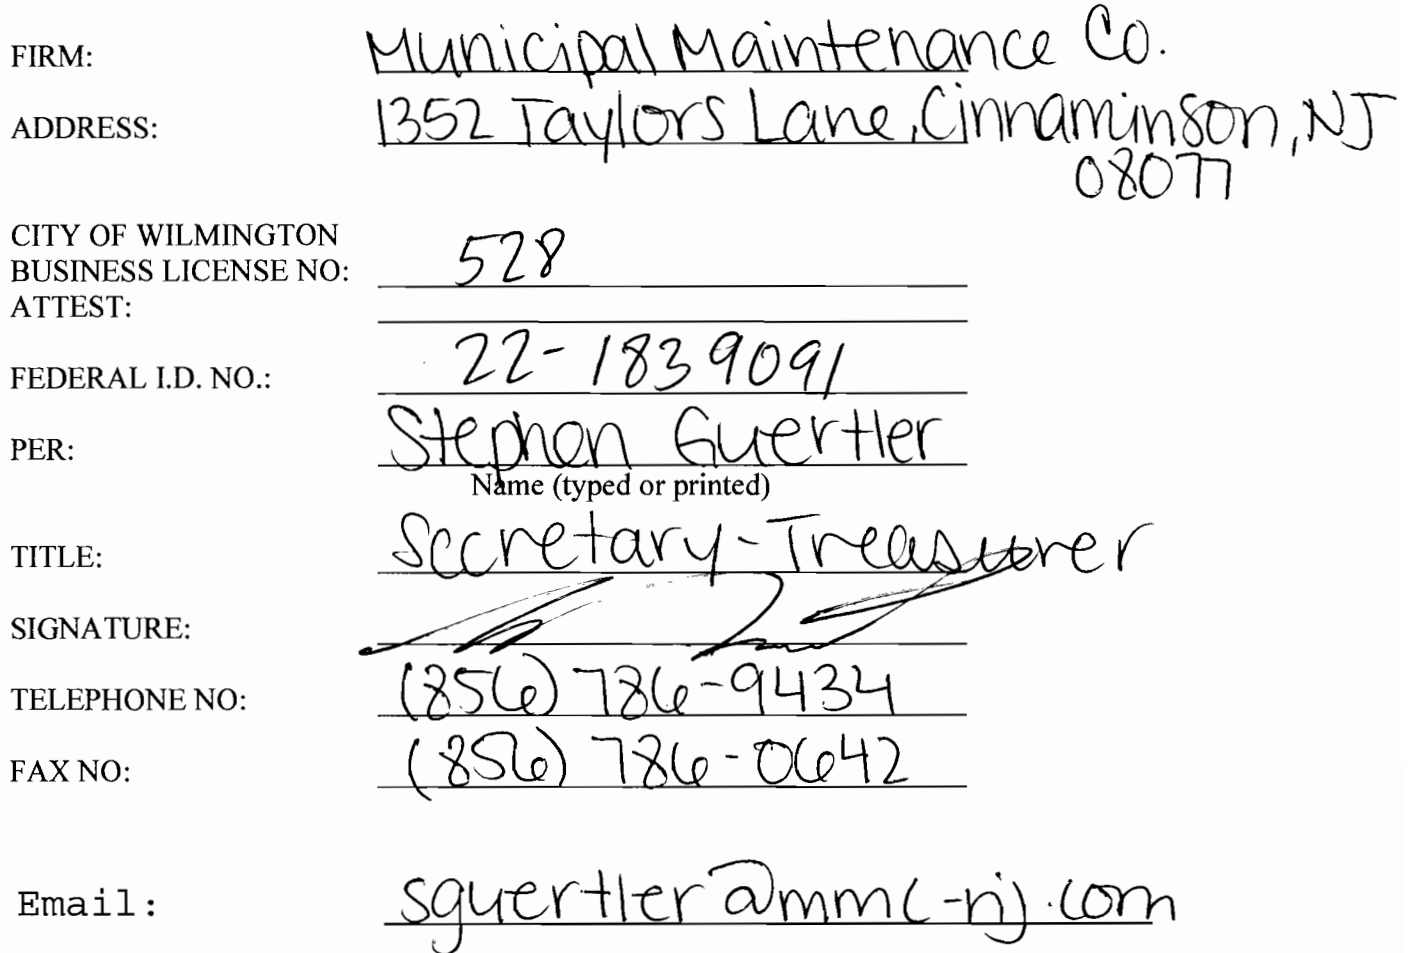 FIRM: Municipal Maintenance Co.
ADDRESS: 1352 Taylors Lane, Cinnaminson, NJ
08077
CITY OF WILMINGTON
BUSINESS LICENSE NO: 528
ATTEST:
FEDERAL I.D. NO.: 22-1839091
PER: Stephen Guertler
Name (typed or printed)
TITLE: Secretary-Treasurer
SIGNATURE:
TELEPHONE NO: (856) 786-9434
FAX NO: (856) 786-0642
Email: sguertler@mmc-nj.com